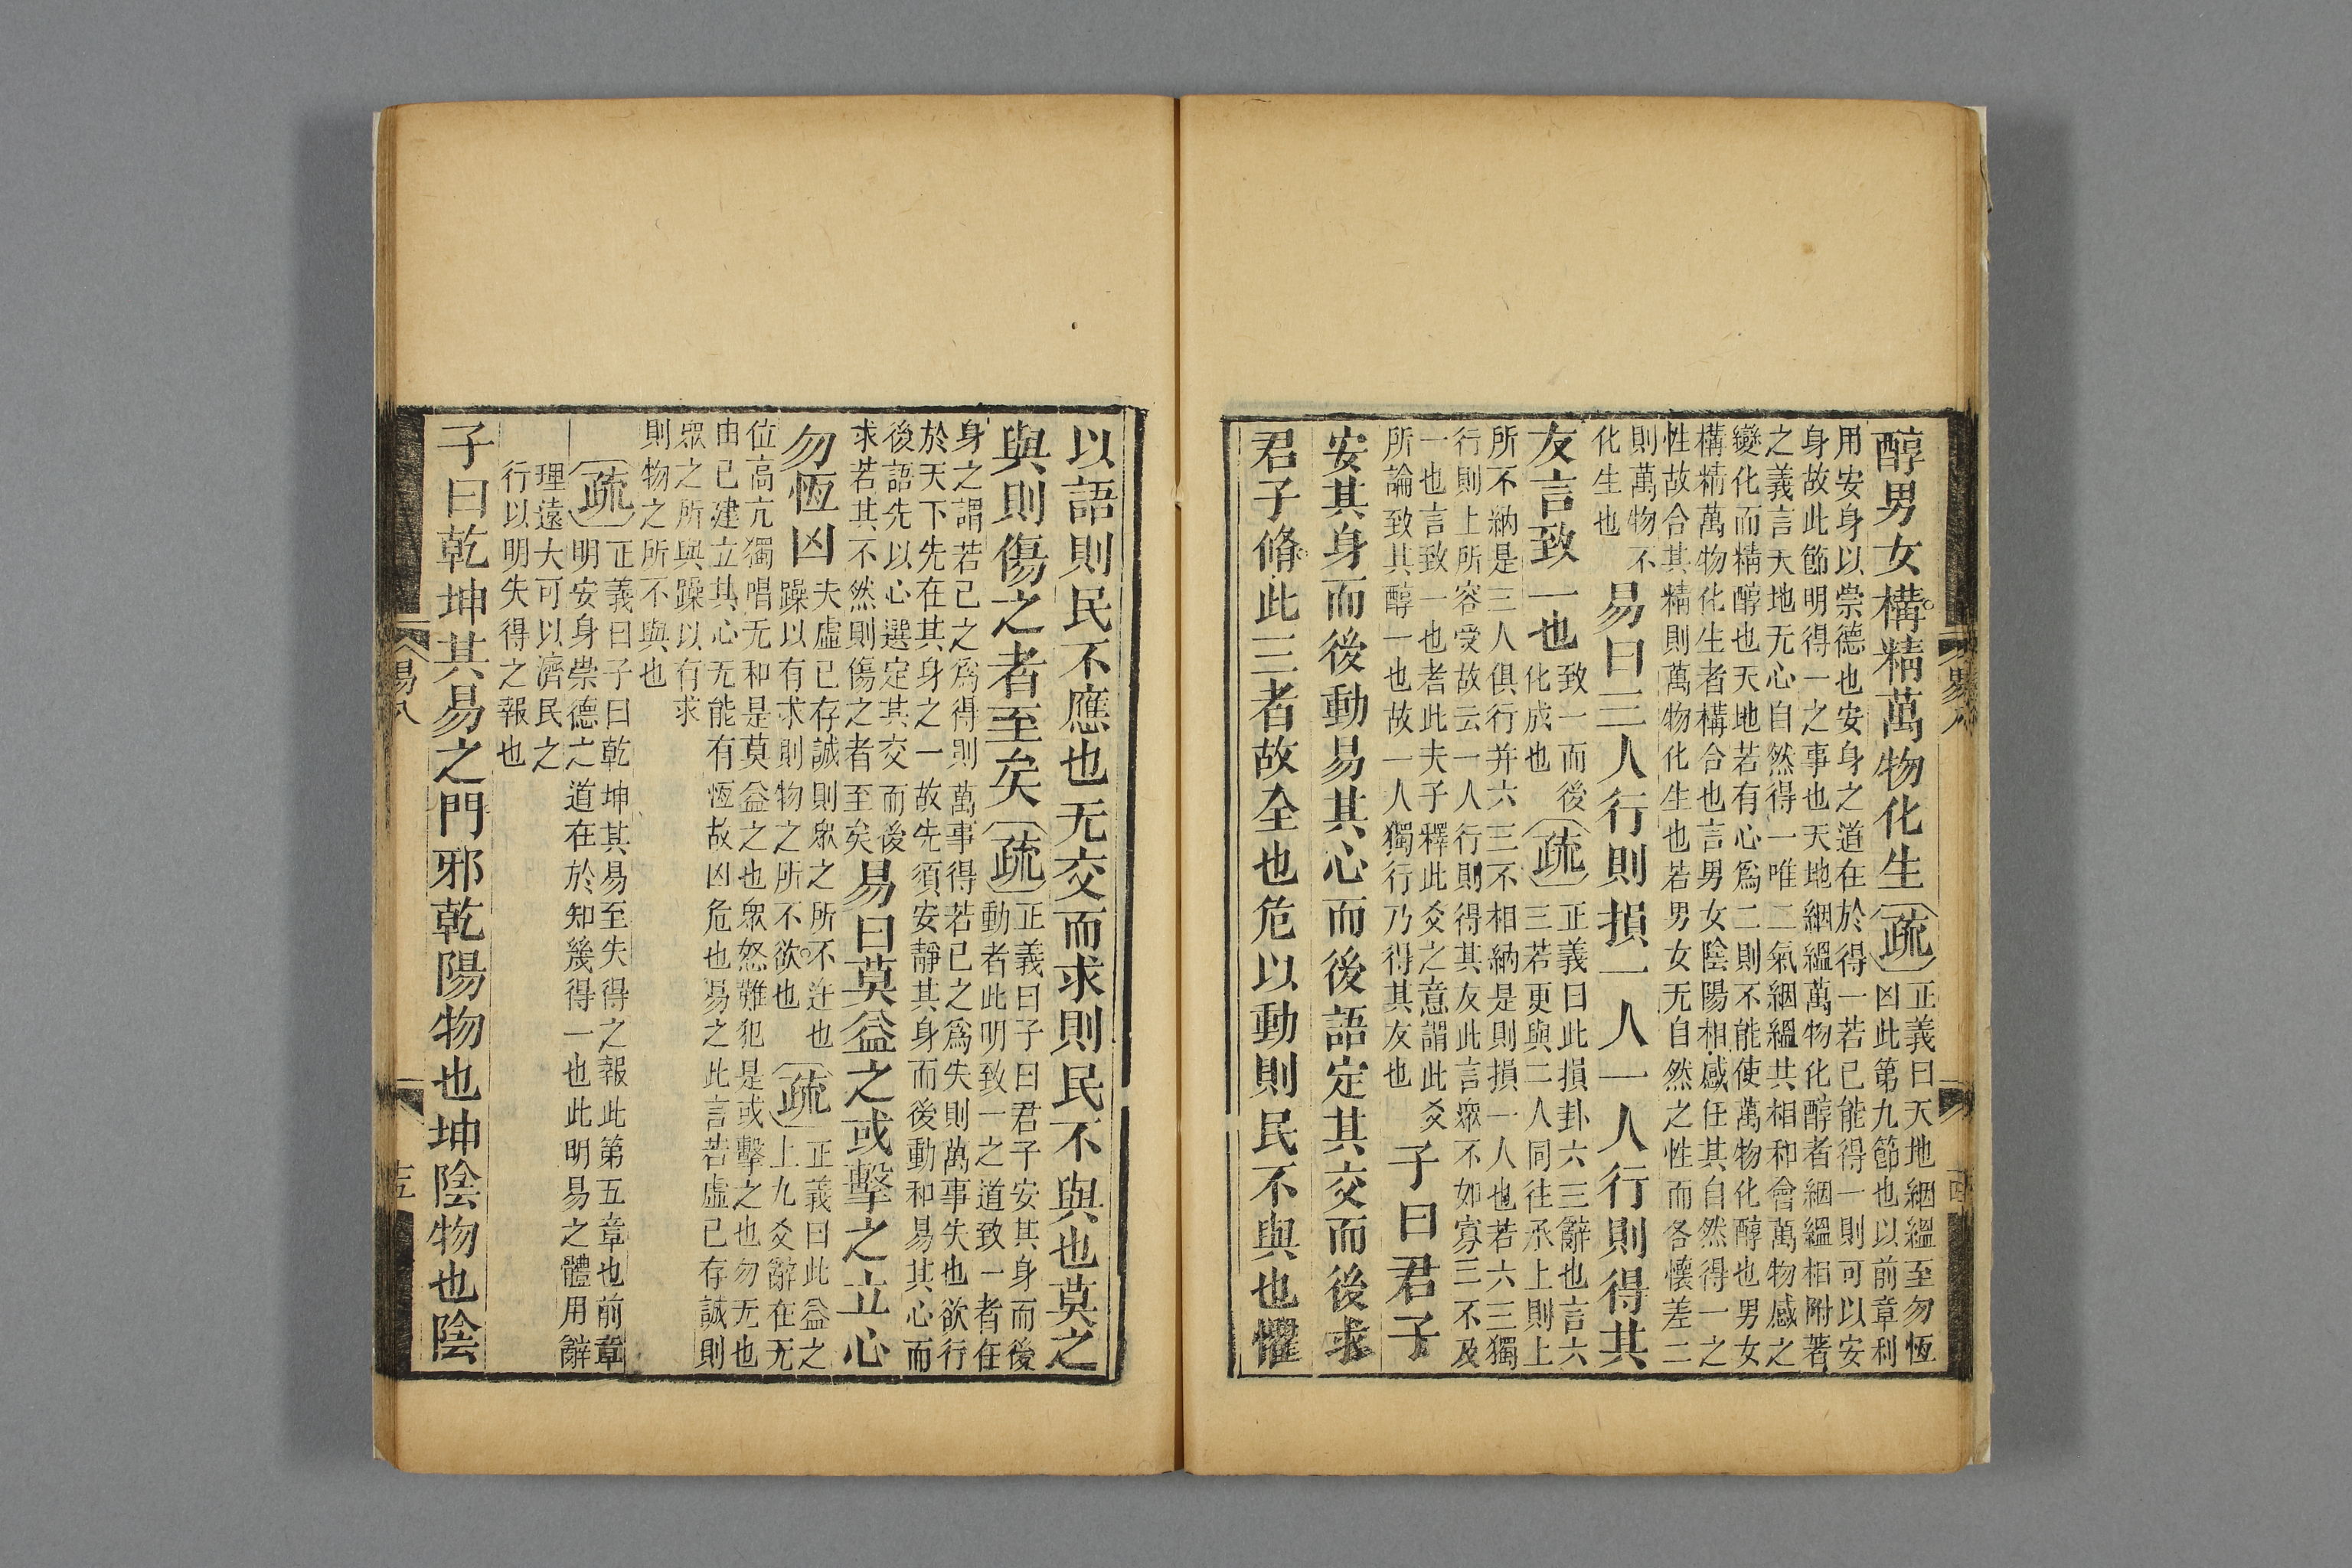 醇男女構精萬物化生疏正義曰天地絪縕至勿恆
凶此第九節也以前章利
用安身以崇德也安身之道在於得一若已能得一則可以安
身故此節明得一之事也天地絪縕萬物化醇者絪縕相附著
之義言天地无心自然得一唯二氣絪縕共相和會萬物感之
變化而精醇也天地若有心爲二則不能使萬物化醇也男女
構精萬物化生者構合也言男女陰陽相感任其自然得一之
性故合其精則萬物化生也若男女无自然之性而各懷差二
則萬物不
化生也
易曰三人行則損一人一人行則得其
友言致一也
致一而後
化成也
疏正義曰此損卦六三辭也言六
三若更與二人同往承上則上
所不納是三人俱行并六三不相納是則損一人也若六三獨
行則上所容受故云一人行則得其友此言衆不如寡三不及
一也言致一也者此夫子釋此爻之意謂此爻
所論致其醇一也故一人獨行乃得其友也
子曰君子
安其身而後動易其心而後語定其交而後求
君子脩此三者故全也危以動則民不與也懼
以語則民不應也无交而求則民不與也莫之
與則傷之者至矣疏正義曰子曰君子安其身而後
動者此明致一之道致一者在
身之謂若己之爲得則萬事得若己之爲失則萬事失也欲行
於天下先在其身之一故先須安靜其身而後動和易其心而
後語先以心選定其交而後
求若其不然則傷之者至矣
易曰莫益之或擊之立心
勿恆凶
夫虛己存誠則衆之所不迕也
躁以有求則物之所不欲也
疏正義曰此益之
上九爻辭在无
位高亢獨唱无和是莫益之也衆怒難犯是或擊之也勿无也
由己建立其心无能有恆故凶危也易之此言若虛己存誠則
衆之所與躁以有求
則物之所不與也
疏正義曰子曰乾坤其易至失得之報此第五章也前章
明安身崇德之道在於知幾得一也此明易之體用辭
理遠大可以濟民之
行以明失得之報也
子曰乾坤其易之門邪乾陽物也坤陰物也陰
易八